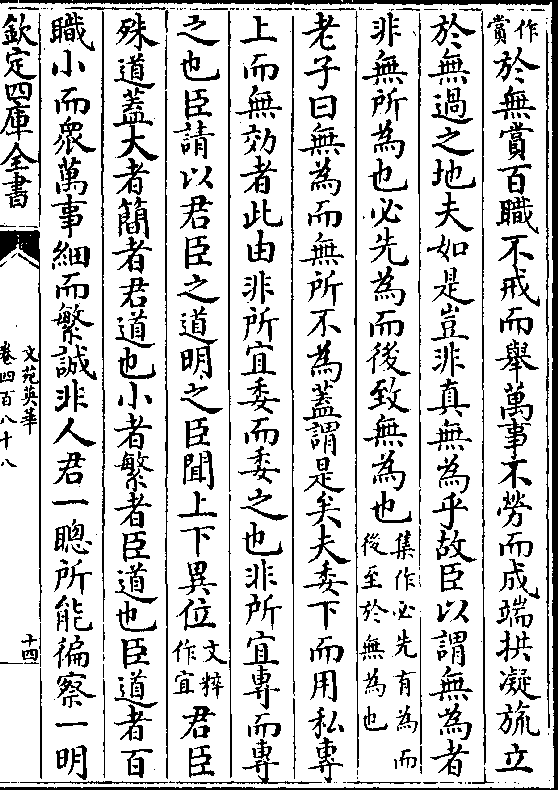 作賞於無賞百職不戒而舉萬事不勞而成端拱凝旒立
於無過之地夫如是豈非真無為乎故臣以謂無為者
非無所為也必先為而後致無為也集作必先有為而後至於無為也
老子曰無為而無所不為蓋謂是矣夫委下而用私專
上而無効者此由非所宜委而委之也非所宜專而專
之也臣請以君臣之道明之臣聞上下異位文粹作宜君臣
殊道蓋大者簡者君道也小者繁者臣道也臣道者百
職小而衆萬事細而繁誠非人君一聰所能徧察一明
欽定四庫全書
文苑英華
卷四百八十八
十四